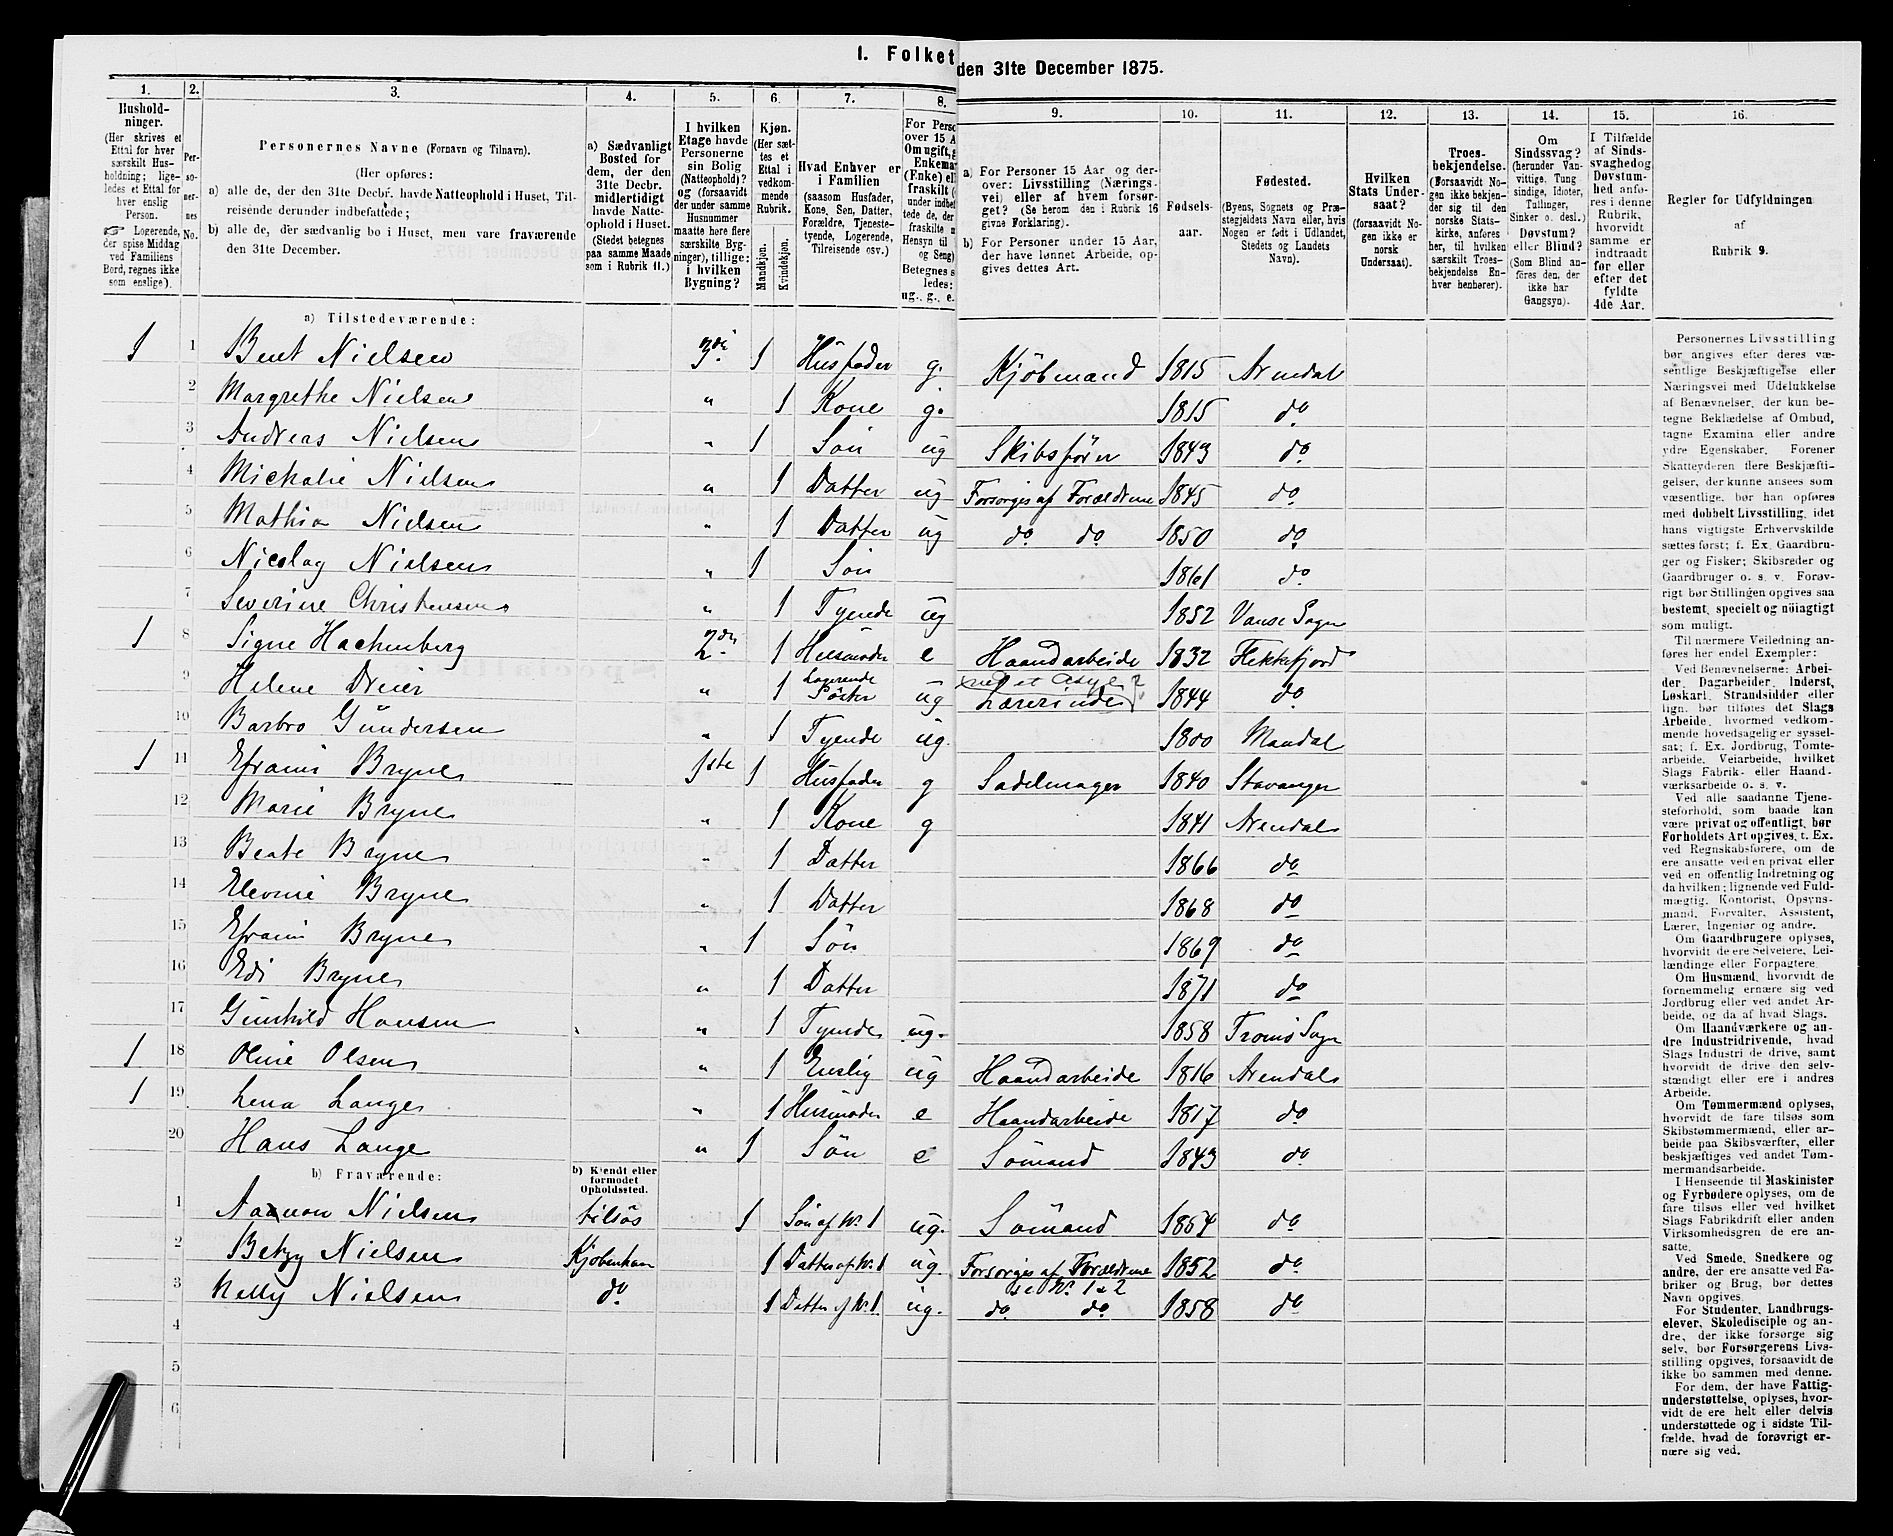 1. Folket
den 31te December 1875.
1. 2. 3. 4. 5. 6. 7. 8. 9. 10. 11. 12. 13. 14. 15. 16.
Hushold-
ninger.
(Her skrives et
Ettal for hver
særskilt Hus-
holdning; lige-
ledes et Ettal for
hver enslig
Person.
☞ Logerende,
der spise Middag
ved Familiens
Bord, regnes ikke
som enslige).
Per-
so-
ner-
nes
No.
Personernes Navne (Fornavn og Tilnavn).
(Her opføres:
a) alle de, der den 31te Decbr. havde Natteophold i Huset, Til-
reisende derunder indbefattede;
b) alle de, der sædvanlig bo i Huset, men vare fraværende
den 31te December.
a) Sædvanligt
Bosted for
dem, der den
31te Decbr.
midlertidigt
havde Natte-
ophold i Huset.
(Stedet betegnes
paa samme Maade
som i Rubrik 11.)
I hvilken
Etage havde
Personerne
sin Bolig
(Natteophold)?
og (forsaavidt
der under samme
Husnummer
maatte høre flere
særskilte Byg-
ninger), tillige:
i hvilken
Bygning?
Kjøn.
(Her sæt-
tes et
Ettal i
vedkom-
mende
Rubrik.
Mandkjøn.
Kvindekjøn.
Hvad Enhver er
i Familien
(saasom Husfader,
Kone, Søn, Datter,
Forældre, Tjeneste-
tyende, Logerende,
Tilreisende osv.)
For Perso
over 15 A
Om ugift, g
Enkema
(Enke) el
fraskilt (
under indbef
tede de, der
fraskilte
Hensyn til
og Seng)
Betegnes s
ledes:
ug., g., e.
a) For Personer 15 Aar og der-
over: Livsstilling (Nærings-
vei) eller af hvem forsør-
get? (Se herom den i Rubrik 16
givne Forklaring).
b) For Personer under 15 Aar,
der have lønnet Arbeide, op-
gives dettes Art.
Fødsels-
aar.
Fødested.
(Byens, Sognets og Præ-
stegjeldets Navn eller, hvis
Nogen er født i Udlandet,
Stedets og Landets
Navn).
Hvilken
Stats Under-
saat?
(forsaavidt No-
gen ikke er
norsk
Undersaat).
Troes-
bekjendelse.
(Forsaavidt No-
gen ikke bekjen-
der sig til den
norske Stats-
kirke, anføres
her, til hvilken
særskilt Troes-
bekjendelse En-
hver henhører).
Om
Sindssvag?
(herunder Van-
vittige, Tung
sindige, Idioter,
Tullinger,
Sinker o. desl.)
Døvstum?
eller Blind?
(Som Blind an-
føres den, der
ikke har
Gangsyn).
I Tilfælde
af Sinds-
svaghed og
Døvstum-
hed anfø-
res i denne
Rubrik,
hvorvidt
samme er
indtraadt
før eller
efter det
fyldte
4de Aar.
Regler for Udfyldningen
af
Rubrik 9.
a) Tilstedeværende:
1 1 Bent Nielsen 3die 1 Husfader g. Kjöbmand 1815 Arendal
2 Margrethe Nielsen " 1 Kone g. 1815 do
3 Andreas Nielsen " 1 Søn ug Skibsfører 1843 do
4 Michalie Nielsen " 1 Datter ug Forsørges af Forældrene 1845 do
5 Mathia Nielsen " 1 Datter ug do do 1850 do
6 Nicolay Nielsen " 1 Søn 1861 do
7 Severine Christensen " 1 Tyende ug 1852 Vanse Sogn
1 8 Signe Hachenberg 2den 1 Husmoder e Haandarbeide 1832 Flekkefjord
9 Helene Dreier " 1 Logerende Søster ug ved et Asyl? Lærerinde 1844 do
10 Barbro Gundersen " 1 Tyende ug. 1800 Mandal
1 11 Efraim Bryne 1ste 1 Husfader g Sadelmager 1840 Stavanger
12 Marie Bryne " 1 Kone g 1841 Arendal
13 Beate Bryne " 1 Datter 1866 do
14 Eleonie Bryne " 1 Datter 1868 do
15 Efraim Bryne " 1 Søn 1869 do
16 Edi Bryne " 1 Datter 1871 do
17 Gunhild Hansen " 1 Tyende ug. 1858 Tromø Sogn
1 18 Oline Olsen " 1 Enslig ug Haandarbeide 1816 Arendal
1 19 Lena Lange " 1 Husmoder e Haandarbeide 1817 do
20 Hans Lange " 1 Søn e Sømand 1843 do
b) Fraværende:
b) Kjendt eller
formodet
Opholdssted.
1 Aanon Nielsen tilsös 1 Søn af No 1 ug. Sømand 1854 do
2 Betzy Nielsen Kjøbenhavn 1 Datter af No 1 ug. Forsørges af Forældrene 1852 do
se No 1 & 2
3 Nelly Nielsen do 1 Datter af No 1. ug. do do 1858 do
4
5
6
Personernes Livsstilling
bør angives efter deres væ-
sentlige Beskjæftigelse eller
Næringsvei med Udelukkelse
af Benævnelser, der kun be-
tegne Beklædelse af Ombud,
tagne Examina eller andre
ydre Egenskaber. Forener
Skatteyderen flere Beskjæfti-
gelser, der kunne ansees som
væsentlige, bør han opføres
med dobbelt Livsstilling, idet
hans vigtigste Erhvervskilde
sættes først; f. Ex. Gaardbru-
ger og Fisker; Skibsreder og
Gaardbruger o. s. v. Forøv-
rigt bør Stillingen opgives saa
bestemt, specielt og nøiagtigt
som muligt.
Til nærmere Veiledning an-
føres her endel Exempler:
Ved Benævnelserne: Arbei-
der, Dagarbeider, Inderst,
Løskarl, Strandsidder eller
lign. bør tilføies det Slags
Arbeide, hvormed vedkom-
mende hovedsagelig er syssel-
sat; f. Ex. Jordbrug, Tomte-
arbeide, Veiarbeide, hvilket
Slags Fabrik- eller Haand-
værksarbeide o. s. v.
Ved alle saadanne Tjene-
steforhold, som baade kan
være privat og offentligt, bør
Forholdets Art opgives, t. Ex.
ved Regnskabsførere, om de
ere ansatte ved en privat eller
ved en offentlig Indretning og
da hvilken; lignende ved Fuld-
mægtig, Kontorist, Opsyns-
mand, Forvalter, Assistent,
Lærer, Ingeniør og andre.
Om Gaardbrugere oplyses,
hvorvidt de ere Selveiere, Lei-
lændinge eller Forpagtere.
Om Husmænd, hvorvidt de
fornemmelig ernære sig ved
Jordbrug eller ved andet Ar-
beide, og da af hvad Slags.
Om Haandværkere og an-
dre Industridrivende, hvad
Slags Industri de drive, samt
hvorvidt de drive den selv-
stændigt eller ere i andres
Arbeide.
Om Tømmermænd oplyses,
hvorvidt de fare tilsøs som
Skibstømmermænd, eller ar-
beide paa Skibsværfter, eller
beskjæftiges ved andet Tøm-
mermandsarbeide.
I Henseende til Maskinister
og Fyrbødere oplyses, om de
fare tilsøs eller ved hvilket
Slags Fabrikdrift eller anden
Virksomhedsgren de ere an-
satte.
Ved Smede, Snedkere og
andre, der ere ansatte ved Fa-
briker og Brug, bør dettes
Navn opgives.
For Studenter, Landbrugs-
elever, Skoledisciple og an-
dre, der ikke forsørge sig
selv, bør Forsørgerens Livs-
stilling opgives, forsaavidt de
ikke bo sammen med denne.
For dem, der have Fattig-
understøttelse, oplyses, hvor-
vidt de ere helt eller delvis
understøttede og i sidste Til-
fælde, hvad de forøvrigt er-
nære sig ved.